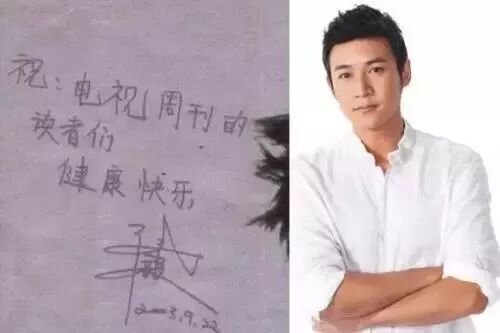 祝：电视周刊的
读者们
健康快乐
2003.9.22